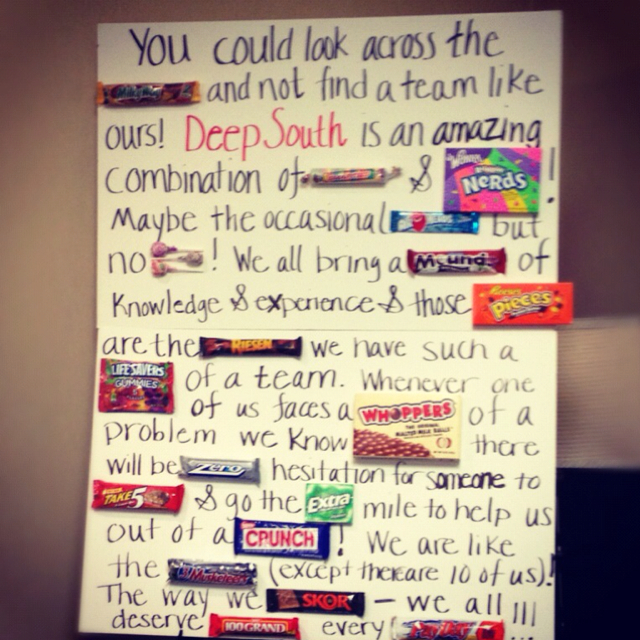 You could look across the
Milky Way and not find a team like
ours! Deep South is an amazing
combination of & Wonka NERDS!
Maybe the occasional but
no ! We all bring a Mounds of
Knowledge & experience & those Reese's Pieces
are the RIESEN we have such a
LIFE SAVERS GUMMIES of a team. Whenever one
of us faces a WHOPPERS THE ORIGINAL MALTED MILK BALLS of a
problem we know there
will be Zero hesitation for someone to
TAKE 5 & go the Extra mile to help us
out of a CRUNCH! We are like
the 3 Musketeers (except there are 10 of us)!
The way we SKOR - we all !!!
deserve 100 GRAND every